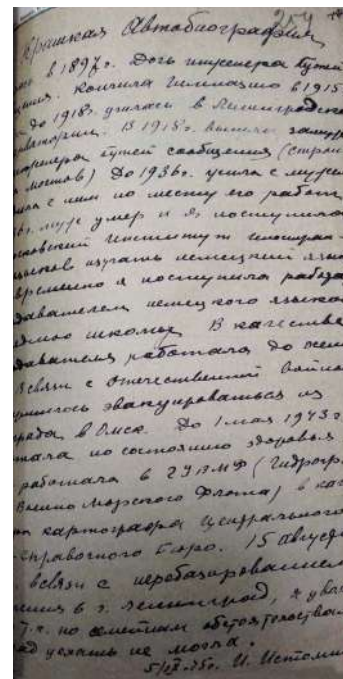 204
Краткая Автобиография
в 1897 г. Дочь инженера путей
Кончила гимназию в 1915
до 1918 г. училась в Ленинградской
В 1918 г. вышла замуж
инженера путей сообщения (строи
мостов) До 1936 г. жила с мужем
с ним по месту его работы
муж умер и я поступила
институт иностран-
языков изучать немецкий язык
временно я поступила работа
давателем немецкого языка
школы. В качестве
давателя работала до
В связи с Отечественной войной
эвакуироваться из
града в Омск. До 1 мая 1943 г.
по состоянию здоровья
работала в ГУВМФ (Гидрогр.
Военно Морского Флота) в кач
картографа Центрального
справочного Бюро. 15 августа
в связи с перебазированием
в г. Ленинград, я
т.к. по семейным обстоятельствам
уехать не могла.
45 г. И. Истомин